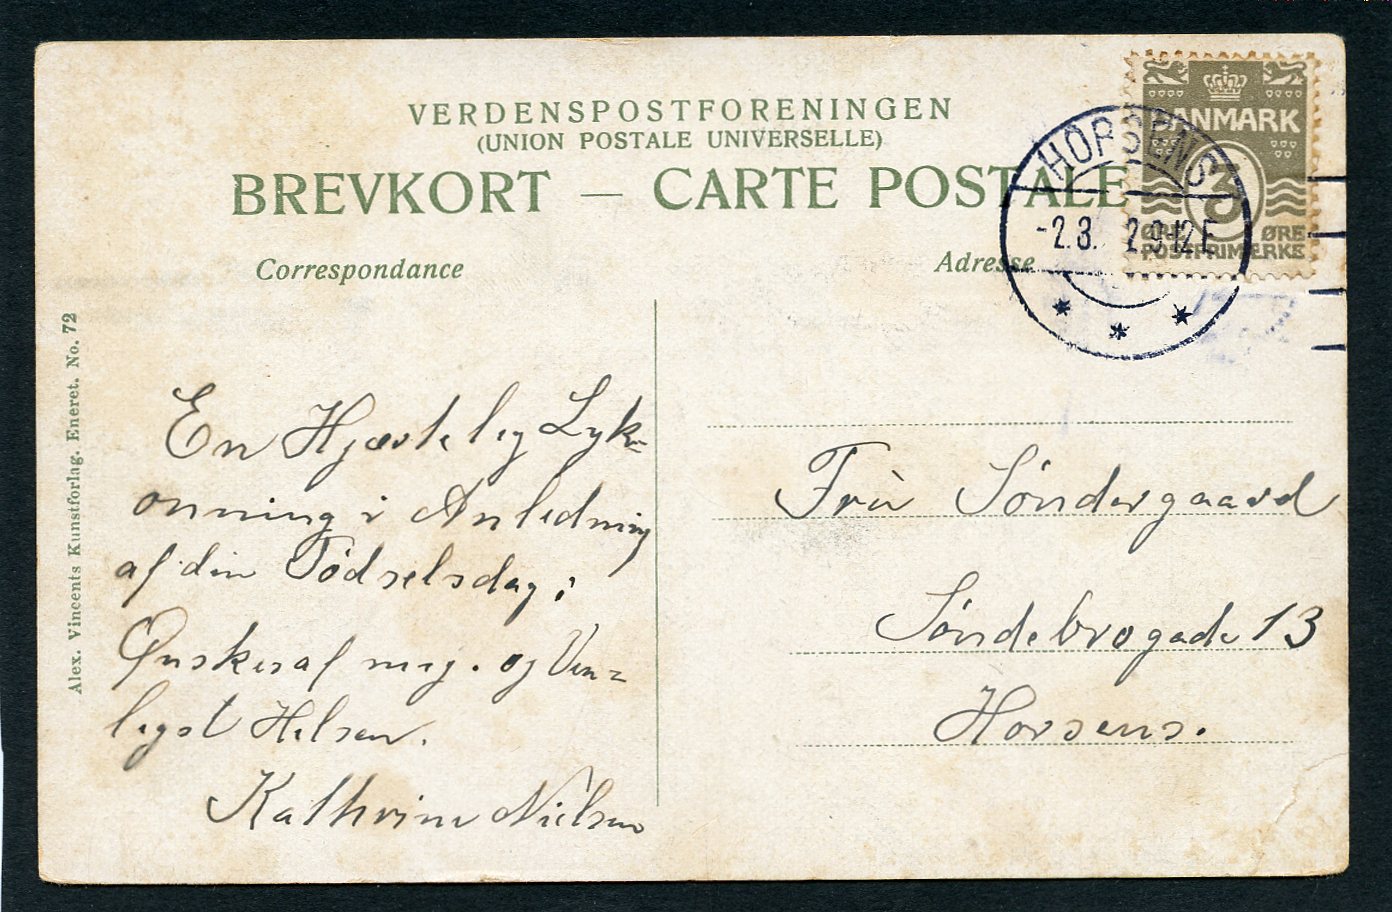 VERDENSPOSTFORENINGEN
(UNION POSTALE UNIVERSELLE)
BREVKORT — CARTE POSTALE
Correspondance
Adresse
DANMARK
3
ØRE ØRE
POSTFRIMÆRKE
HORSENS
-2.3. 2 9-12 F
* * *
Alex. Vincents Kunstforlag. Eneret. No. 72
En Hjærtelig Lyk-
ønning i Anledning
af din Födselsdag;
Ønskes af mig. og Ven=
ligst Hilsen.
Kathrine Nielsen
Frù Söndergaard
Söndebrogade 13
Horsens.